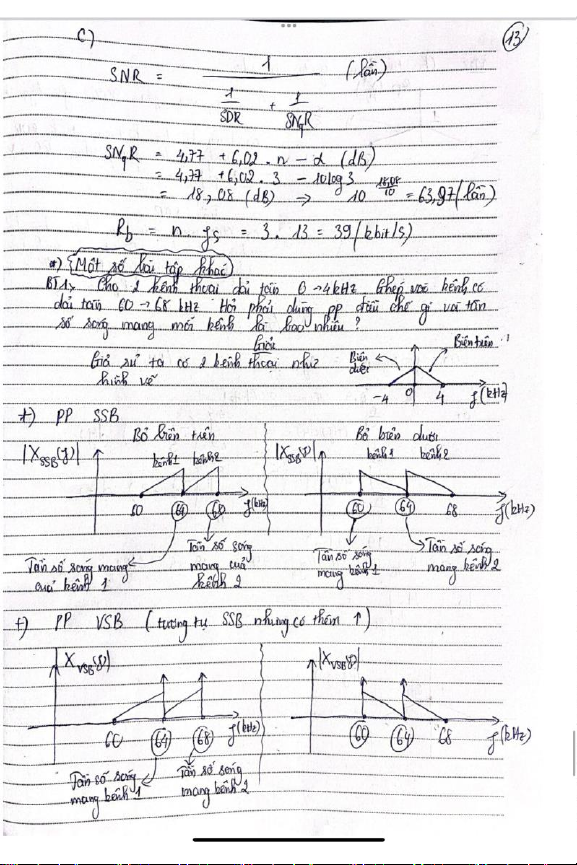 13
c)
SNR = 1 / (1/SDR + 1/SNqR) (lần)
SNqR = 4,77 + 6,02 . n - α (dB)
= 4,77 + 6,02 . 3 - 10log3
= 18,08 (dB) ⇒ 10^(18,08/10) = 63,97 (lần)
Rb = n . fs = 3 . 13 = 39 (kbit/s)
*) Một số bài tập khác
BT1> Cho 2 kênh thoại dải tần 0 → 4kHz. Ghép vào kênh có
dải tần 60 → 68 kHz. Hỏi phải dùng pp điều chế gì và tần
số sóng mang mỗi kênh là bao nhiêu?
Giải
Giả sử ta có 2 kênh thoại như
hình vẽ
Biên dưới
Biên trên
-4 0 4 f(kHz)
+) PP SSB
Bỏ biên trên
|XSSB(f)| kênh1 kênh2
60 64 68 f(kHz)
Tần số sóng mang
của kênh 1
Tần số sóng
mang của
kênh 2
Bỏ biên dưới
|XSSB(f)| kênh1 kênh2
60 64 68 f(kHz)
Tần số sóng
mang kênh 1
Tần số sóng
mang kênh 2
+) PP VSB (tương tự SSB nhưng có thêm ↑)
|XVSB(f)|
60 64 68 f(kHz)
Tần số sóng
mang kênh 1
Tần số sóng
mang kênh 2
|XVSB(f)|
60 64 68 f(kHz)